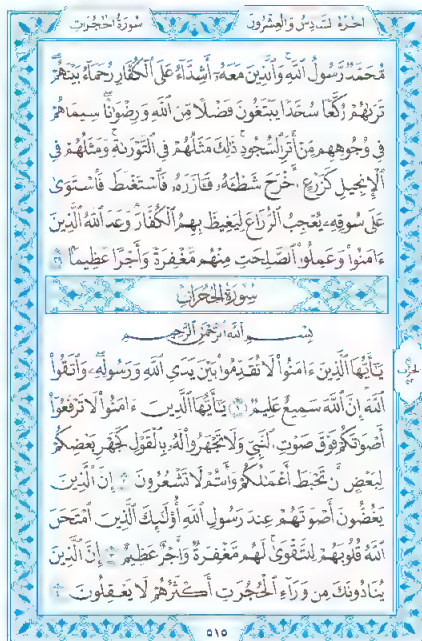 الجزء السادس والعشرون سورة الحجرات
مُّحَمَّدٌ رَّسُولُ ٱللَّهِ وَٱلَّذِينَ مَعَهُۥٓ أَشِدَّآءُ عَلَى ٱلْكُفَّارِ رُحَمَآءُ بَيْنَهُمْ
تَرَىٰهُمْ رُكَّعًا سُجَّدًا يَبْتَغُونَ فَضْلًا مِّنَ ٱللَّهِ وَرِضْوَٰنًا سِيمَاهُمْ
فِى وُجُوهِهِم مِّنْ أَثَرِ ٱلسُّجُودِ ذَٰلِكَ مَثَلُهُمْ فِى ٱلتَّوْرَىٰةِ وَمَثَلُهُمْ فِى
ٱلْإِنجِيلِ كَزَرْعٍ أَخْرَجَ شَطْـَٔهُۥ فَـَٔازَرَهُۥ فَٱسْتَغْلَظَ فَٱسْتَوَىٰ
عَلَىٰ سُوقِهِۦ يُعْجِبُ ٱلزُّرَّاعَ لِيَغِيظَ بِهِمُ ٱلْكُفَّارَ وَعَدَ ٱللَّهُ ٱلَّذِينَ
ءَامَنُوا۟ وَعَمِلُوا۟ ٱلصَّٰلِحَٰتِ مِنْهُم مَّغْفِرَةً وَأَجْرًا عَظِيمًۢا ٢٩
سُورَةُ الحُجُرَاتِ
بِسْمِ ٱللَّهِ ٱلرَّحْمَٰنِ ٱلرَّحِيمِ
يَٰٓأَيُّهَا ٱلَّذِينَ ءَامَنُوا۟ لَا تُقَدِّمُوا۟ بَيْنَ يَدَىِ ٱللَّهِ وَرَسُولِهِۦ وَٱتَّقُوا۟
ٱللَّهَ إِنَّ ٱللَّهَ سَمِيعٌ عَلِيمٌ ١ يَٰٓأَيُّهَا ٱلَّذِينَ ءَامَنُوا۟ لَا تَرْفَعُوٓا۟
أَصْوَٰتَكُمْ فَوْقَ صَوْتِ ٱلنَّبِىِّ وَلَا تَجْهَرُوا۟ لَهُۥ بِٱلْقَوْلِ كَجَهْرِ بَعْضِكُمْ
لِبَعْضٍ أَن تَحْبَطَ أَعْمَٰلُكُمْ وَأَنتُمْ لَا تَشْعُرُونَ ٢ إِنَّ ٱلَّذِينَ
يَغُضُّونَ أَصْوَٰتَهُمْ عِندَ رَسُولِ ٱللَّهِ أُو۟لَٰٓئِكَ ٱلَّذِينَ ٱمْتَحَنَ
ٱللَّهُ قُلُوبَهُمْ لِلتَّقْوَىٰ لَهُم مَّغْفِرَةٌ وَأَجْرٌ عَظِيمٌ ٣ إِنَّ ٱلَّذِينَ
يُنَادُونَكَ مِن وَرَآءِ ٱلْحُجُرَٰتِ أَكْثَرُهُمْ لَا يَعْقِلُونَ ٤
٥١٥